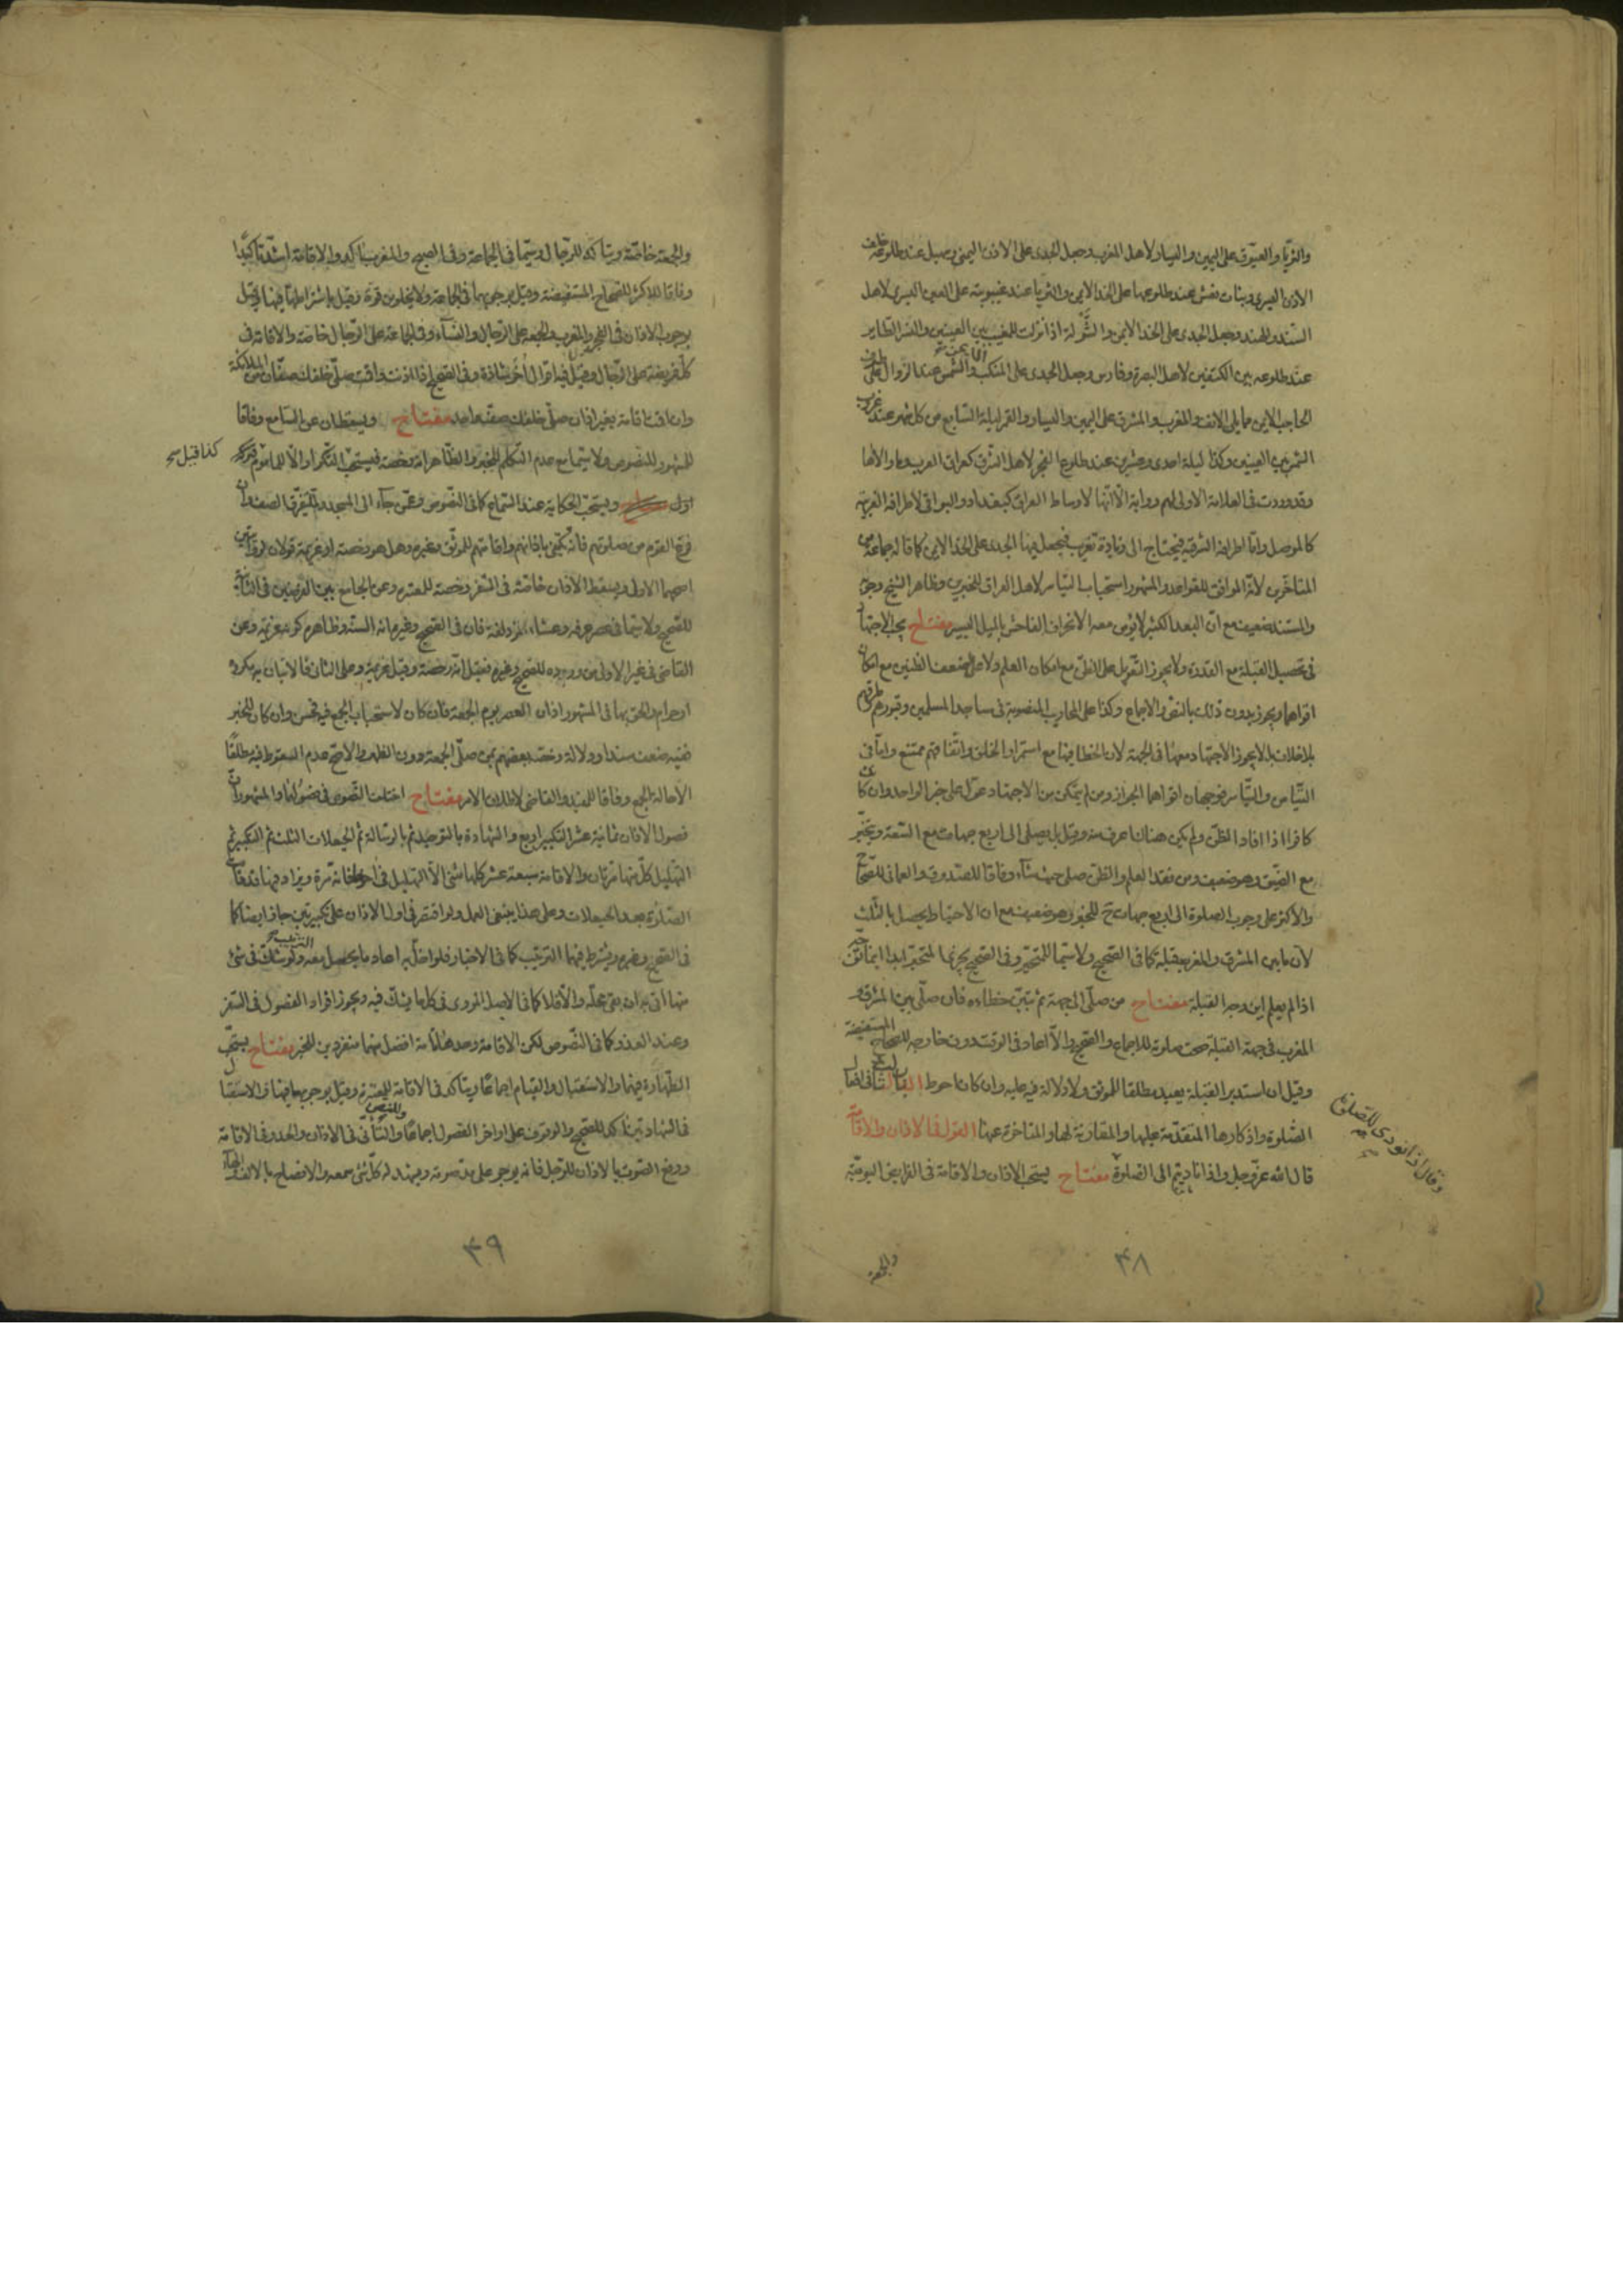 والثريا والعيوق على اليمين واليسار لاهل المغرب وجعل الجدى على الاذن اليمنى وسهيل عند طلوعه خلف
الاذن اليسرى وبنات نعش عند طلوعها على الخد الايمن والثريا عند غيبوبته على العين اليسرى لاهل
السند والهند وجعل الجدى على الخد الايمن والشَّولة اذا نزلت للمغيب بين العينين والنسر الطاير
عند طلوعه بين الكتفين لاهل البصرة وفارس وجعل الجدى على المنكب والشمس عند الزوال على طرف
الحاجب الايمن مما يلى الانف والمغرب والمشرق على اليمين واليسار والقمر ليلة السابع من كل شهر عند غروب
الشمس بين العينين وكذا ليلة احدى وعشرين عند طلوع الفجر لاهل الشرق كعراق العرب وما والاها
وقد وردت فى العلامة الاولى لهم رواية الا انها لاوساط العراق كبغداد والبواقى لاطرافه الغربية
كالموصل واما اطرافه الشرقية فيحتاج الى زيادة تغريب فيجعل فيها الجدى على الخد الايمن كما قاله جماعة من
المتاخرين لانه الموافق للقواعد والمشهور استحباب التياسر لاهل العراق للخبرين وظاهر الشيخ وجوبه
والمستند ضعيف مع ان البعد الكثير لا يؤمن معه الانحراف الفاحش بالميل اليسير مفتاح يجب الاجتهاد
فى تحصيل القبلة مع القدرة ولا يجوز التعويل على الظن مع امكان العلم ولا على اضعف الظنين مع امكان
اقواهما ويجوز بدون ذلك بالنص والاجماع وكذا على المحاريب المنصوبة فى مساجد المسلمين وقبورهم وطرقهم
بلا خلاف بل لا يجوز الاجتهاد معها فى الجهة لان الخطا فيها مع استمرار الخلق واتفاقهم ممتنع واما فى
التيامن والتياسر فوجهان اقواهما الجواز ومن لم يتمكن من الاجتهاد عوّل على خبر الواحد وان كان
كافرا اذا افاد الظن ولم يكن هناك اعرف منه وقيل بل يصلى الى اربع جهات مع السعة ويتخيّر
مع الضيق وهو ضعيف ومن فقد العلم والظن صلى حيث شاء وفاقا للصدوق والعمانى للصحاح
والاكثر على وجوب الصلوة الى اربع جهات ح للخبر وهو ضعيف مع ان الاحتياط يحصل بالثلث
لان ما بين المشرق والمغرب قبلة كما فى الصحيح ولا سيما للمتحيّر وفى الصحيح يجزى المتحيّر ابدا اينما توجه
اذا لم يعلم اين وجه القبلة مفتاح من صلّى الى جهة ثم تبيّن خطاءه فان صلّى بين المشرق و
المغرب فى جهة القبلة صحت صلوته للاجماع والصحيح والا اعاد فى الوقت دون خارجه للصحاح المستفيضة
وقيل ان استدبر القبلة يعيد مطلقا للموثق ولا دلالة فيه عليه وان كان احوط الباب الثانى فى افعال
الصلوة واذكارها المتقدّمة عليها والمقارنة لها والمتاخرة عنها القول فى الاذان والاقامة
قال الله عزّ وجل واذا ناديتم الى الصلوة مفتاح يستحب الاذان والاقامة فى الفرايض اليومية
وقال اذا نودى للصلوة
والجمعة
٣٨
والجمعة خاصّة ويتاكّد للرّجال وسيّما فى الجماعة وفى الصبح والمغرب آكد والاقامة اشدّ تاكيدًا
وفاقا للاكثر للصحاح المستفيضة وقيل بوجوبهما فى الجماعة ولا يخلو من قوة وقيل باشتراطها فيها وقيل
بوجوب الاذان فى الفجر والمغرب والجمعة على الرّجال والنساء وفى الجماعة على الرّجال خاصّة والاقامة فى
كل فريضة على الرّجال وقيل فيه اقوال أُخر شاذة وفى الصحيح اذا اذنت واقمت صلّى خلفك صفّان من الملائكة
وان اقمت اقامة بغير اذان صلّى خلفك صف واحد مفتاح ويسقطان عن السامع وفاقا
للمشهور للنصوص ولا سيّما مع عدم التكلم للخبر والظاهر انه رخصة فيستحب التكرار والا للماموم
كذا قيل
اول ويستحب الحكاية عند السّماع كما فى النّصوص وعمّن جآء الى المسجد ولم يتفرق الصفوف ان
فرغ القوم من صلوتهم فانّه يكتفى باذانهم واقامتهم للموثّق وغيره وهل هو رخصة او عزيمة قولان
اصحهما الاولى ويسقط الاذان خاصّة فى السّفر رخصة للمعتبره وعن الجامع بين الفرضين فى الثانية
للصحيح ولا سيّما فى عصر عرفه وعشاء المزدلفة فان فى الصحيح وغيره انه السنّة وظاهره كونه عزيمة وعن
القاضى فى غير الاولى من وروده للصحيح وغيره فقيل انّه رخصة وقيل عزيمة وعلى الثانى فالاتيان به مكروه
او حرام والحق بها فى المشهور اذان العصر يوم الجمعة فان كان لاستحباب الجمع فيه فحسن وان كان للخبر
ففيه ضعف سندا ودلالة وخصّه بعضهم بمن صلّى الجمعة دون الظهر والاصحّ عدم السقوط فيه مطلقًا
الا حالة الجمع وفاقا للمفيد والقاضى لاطلاق الامر مفتاح اختلف النّصوص فى فصولهما والمشهور انّ
فصول الاذان ثمانية عشر التكبير اربع والشهادة بالتوحيد ثم بالرسالة ثم الحيعلات الثلث ثم التكبير ثم
التهليل كلّ منها مرّتان والاقامة سبعة عشر كلها مثنى الّا التهليل فى اخرها فانه مرّة ويزاد فيها قد قامت
الصّلوة بعد الحيعلات وعلى هذا ينبغى العمل ولو اقتصر فى اول الاذان على تكبيرتين جاز ايضا كما
فى الصحيح وغيره ويشترط فيهما الترتيب كما فى الاخبار فلو اخلّ به اعاد ما يحصل معه الترتيب ولو شك فى شئ
منها اتى به ان بقى محلّه والا فلا كما فى الاصل المروى فى كل ما يشك فيه ويجوز افراد الفصول فى السّفر
وعند العذر كما فى النّصوص لكن الاقامة وحدها تامّة افضل منهما منفردين للخبر مفتاح يستحب
الطّهارة فيهما والاستقبال والقيام اجماعًا ويتاكد فى الاقامة للمعتبرة وقيل بوجوبها فيها والاستقبال
فى الشهادتين آكد للصحيح والوقوف على اواخر الفصول اجماعًا وللنص والتأنّى فى الاذان والحدر فى الاقامة
ورفع الصّوت بالاذان للرّجل فانه يوجر على مد صوته ويشهد له كلّ شئ سمعه والافصاح بالالف والهاء
٣٩